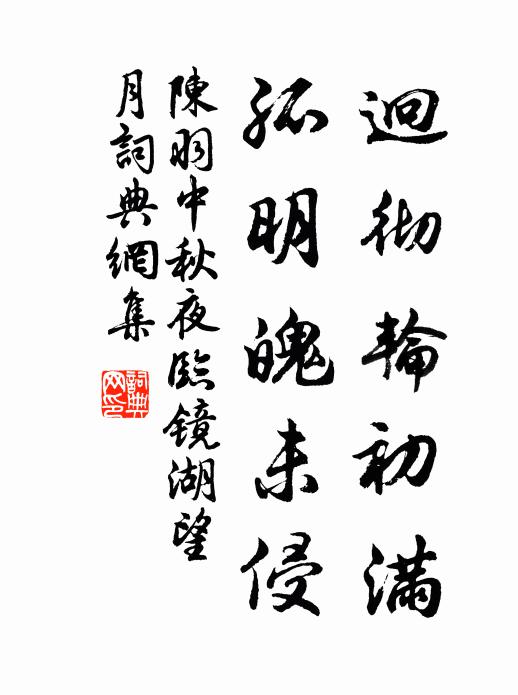 迥彻輪初滿
孤明魄未侵
陳羽中秋夜臨鏡湖望
月詞典網集
詞典
网印